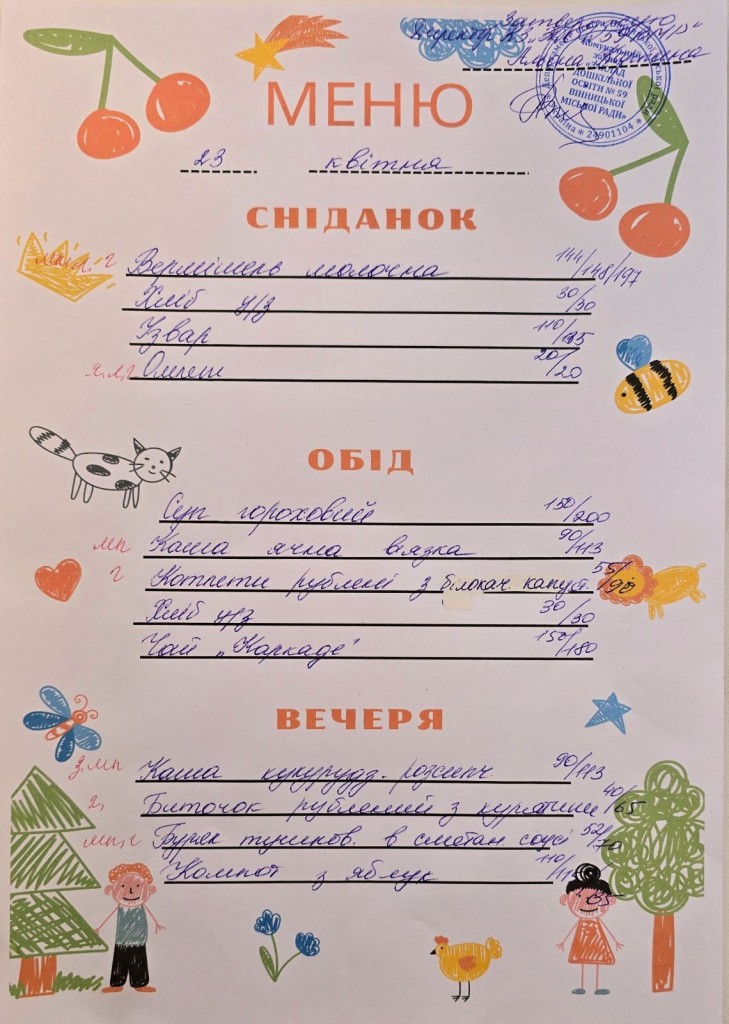 Затверджую
Директор КЗ "ЗДО №59 ВМР"
Альона
Комунальний
заклад
«ЗАКЛАД
ДОШКІЛЬНОЇ
ОСВІТИ № 59
ВІННИЦЬКОЇ
МІСЬКОЇ РАДИ»
Україна * 24901104 *
МЕНЮ
23 квітня
СНІДАНОК
мп, г Вермішель молочна 144/148/197
Хліб у/з 30/30
Узвар 110/135
я, л, г Омлет 20/20
ОБІД
Суп гороховий 150/200
мп Каша ячна в'язка 90/113
г Котлети рублені з білокач. капуст. 55/90
Хліб у/з 30/30
Чай „Каркаде" 150/180
ВЕЧЕРЯ
з, мп Каша кукурудз. розсипч. 90/113
г, Биточок рублений з курятини 40/65
мп, г Буряк тушков. в сметан соусі 52/70
Компот з яблук 110/